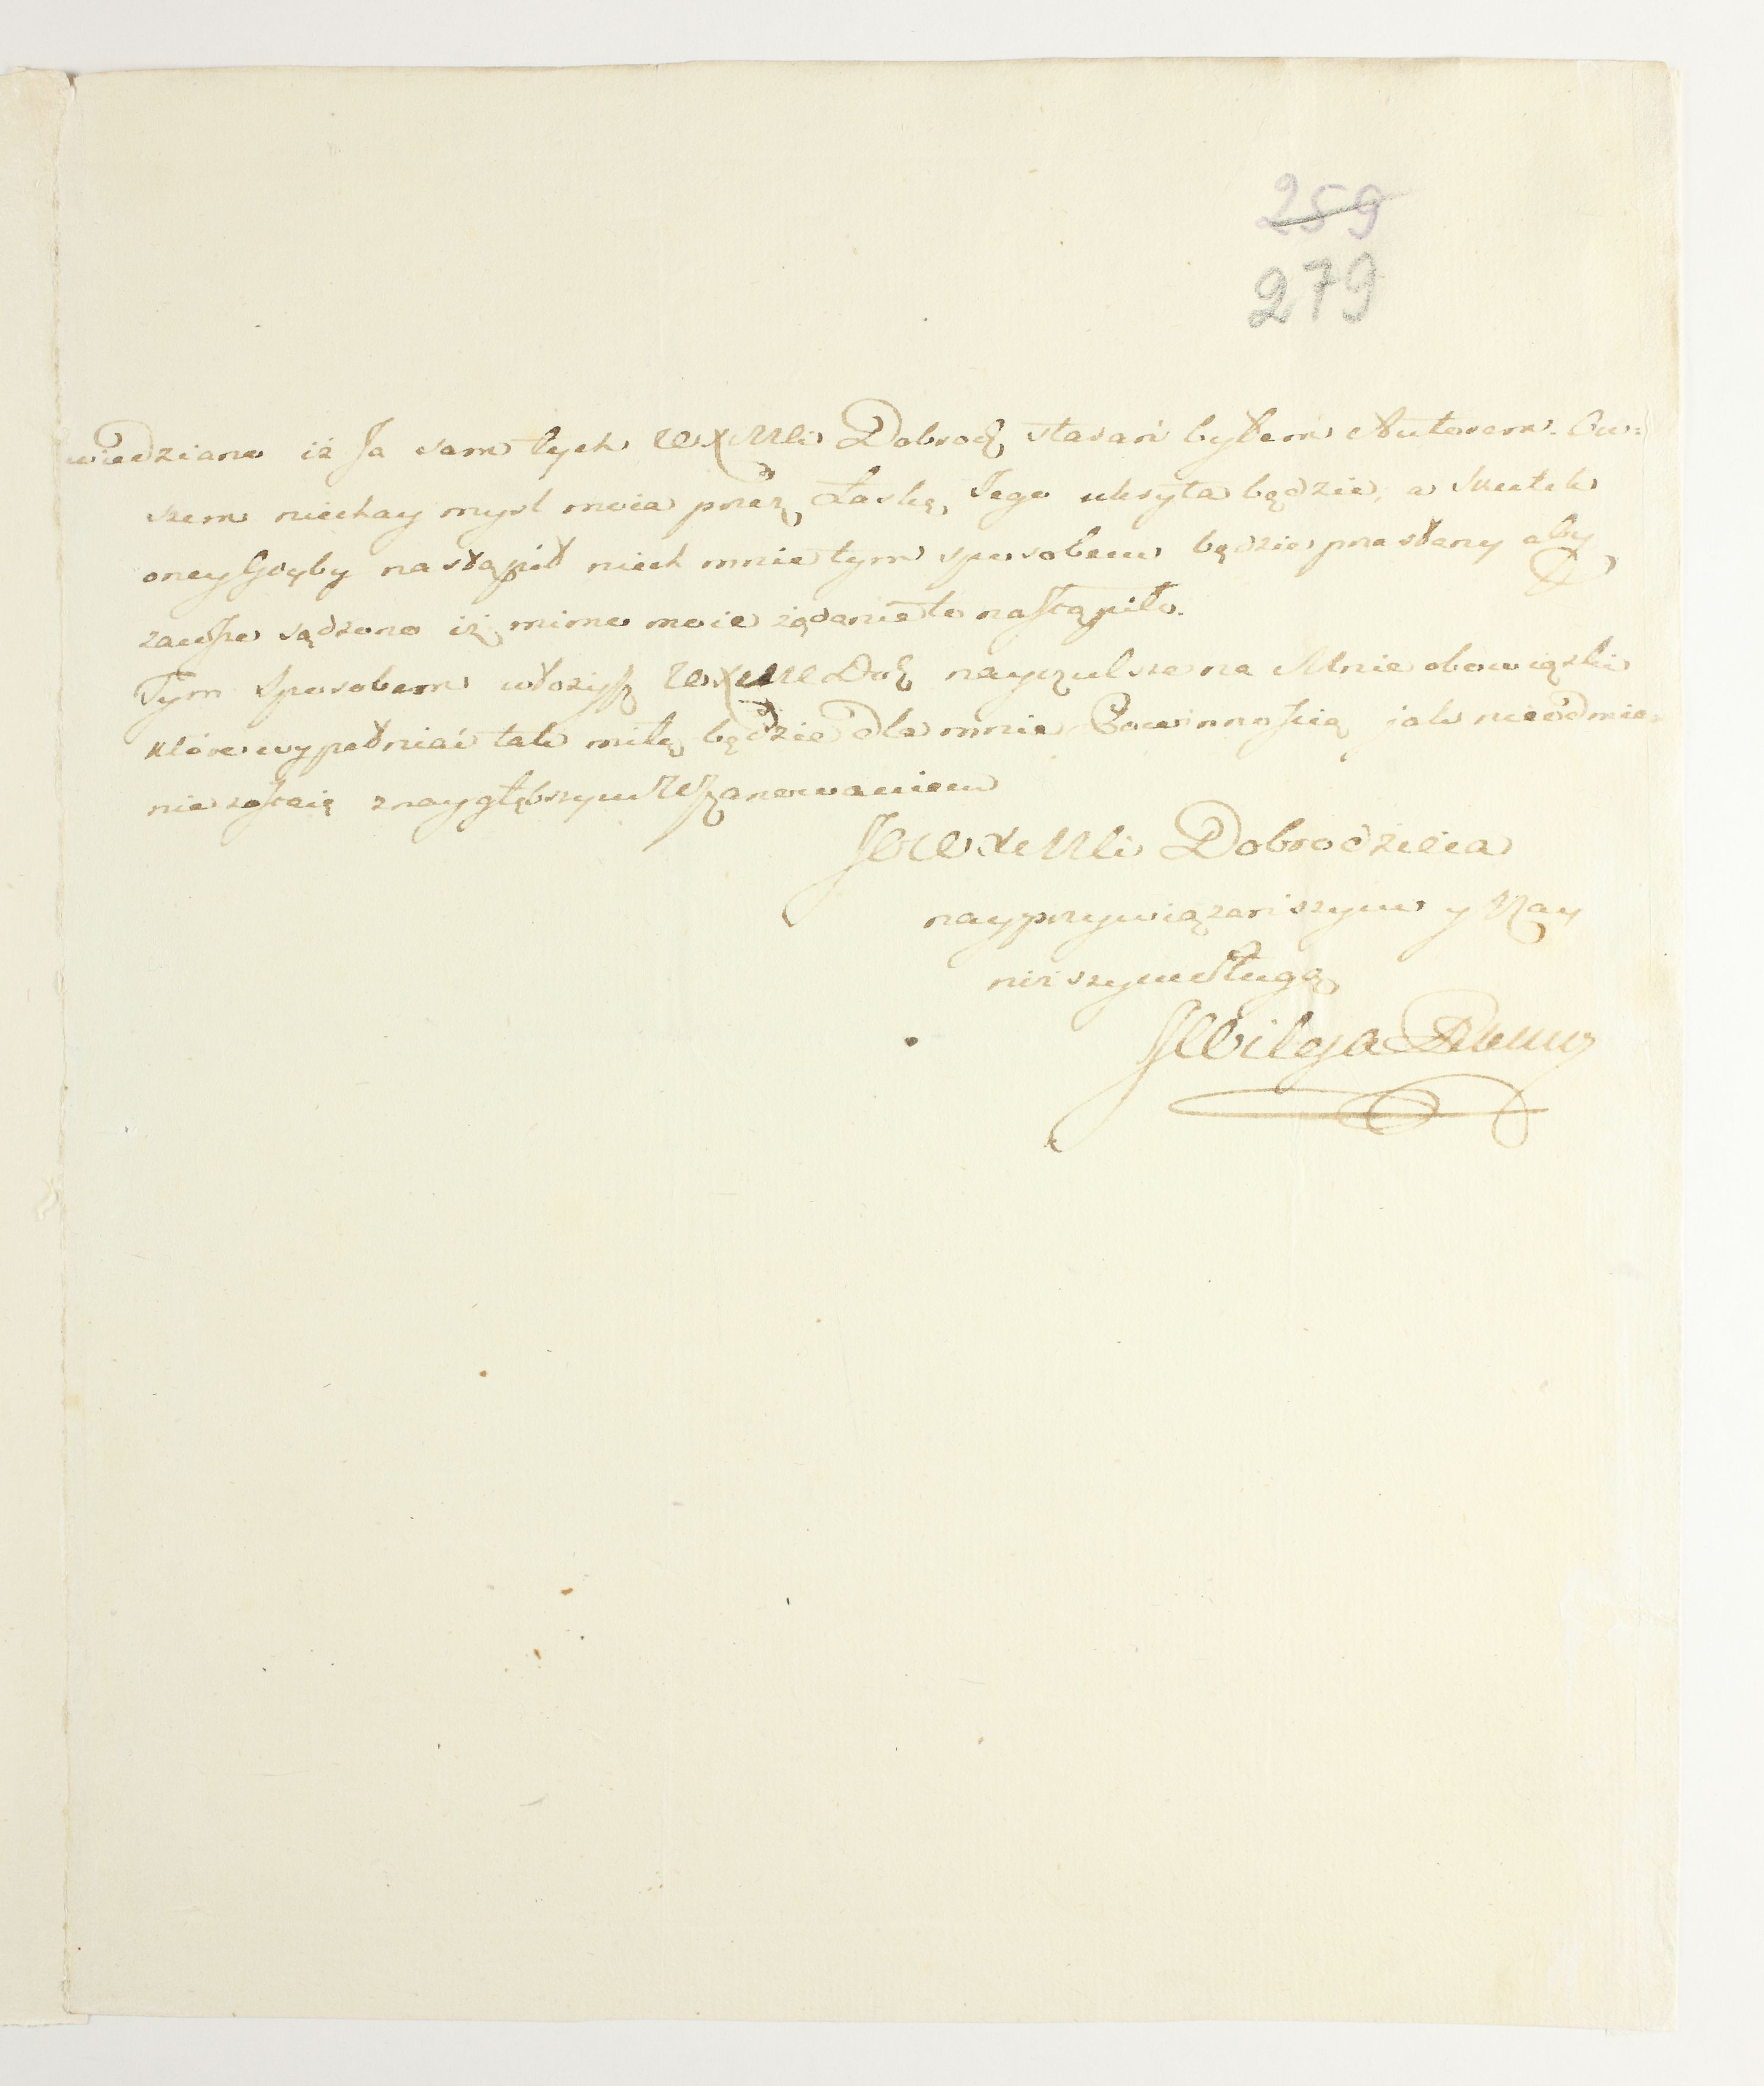 259
279
wiedziano iż Ja sam tych WXMci Dobrodz starań byłem Autorem. Ow:
szem niechay mysl moia przez Łaskę Jego ukryta będzie, a Skutek
oney gdyby nastąpił niech mnie tym sposobem będzie przesłany aby
zawsze sądzono iż mimo moie żądanie to nastąpiło.
Tym Sposobem włożysz WXMDob nayczulsze na Mnie obowiązki
które wypełniać tak miłą będzie dla mnie Powinnością iak nieodmien
nie zostaię z naygłębszym Uszanowaniem
JWXMci Dobrodzieia
nayprzywiązańszym y Nay
niższym Sługą